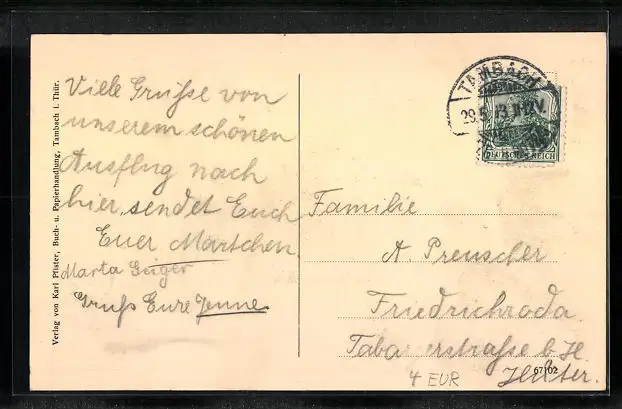 Verlag von Karl Pfister, Buch- u. Papierhandlung, Tambach i. Thür.
Viele Grüsse von
unserem schönen
Ausflug nach
hier, sendet Euch
Euer Martchen
Marta Geiger
Gruß Eure Jenne
TAMBACH
29.5.13 11-12V.
DEUTSCHES REICH
Familie
A. Preuscher
Friedrichroda
strasse b. H.
67102
4 EUR